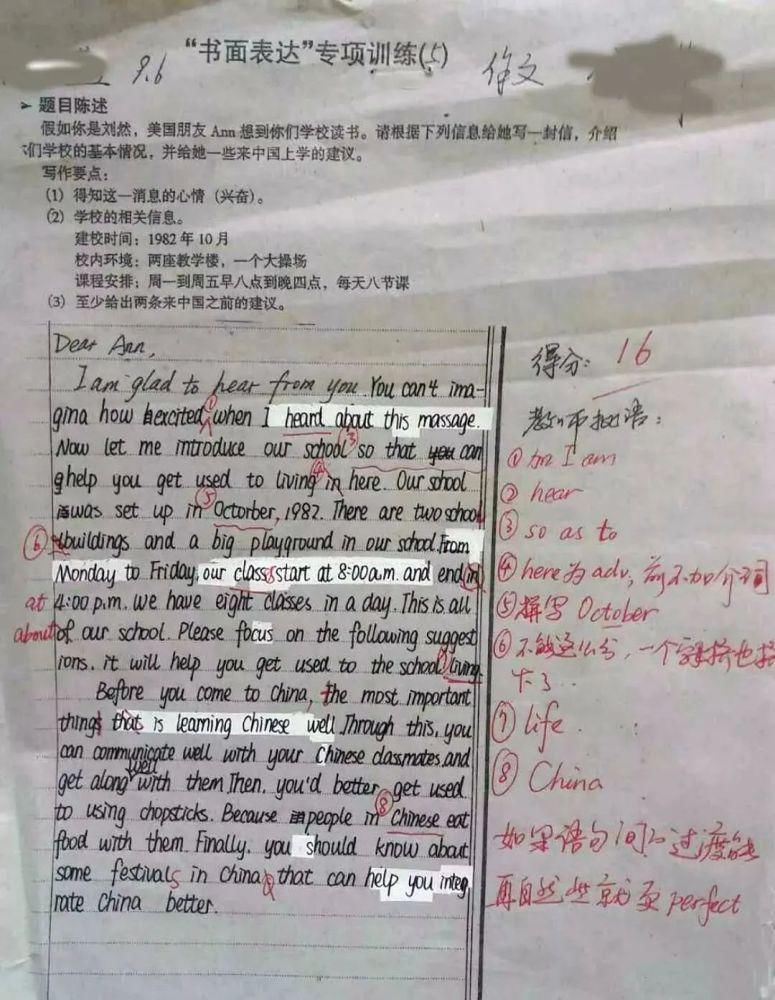 9.6 “书面表达”专项训练(5)
➤ 题目陈述
假如你是刘然，美国朋友 Ann 想到你们学校读书。请根据下列信息给她写一封信，介绍
们学校的基本情况，并给她一些来中国上学的建议。
写作要点：
(1) 得知这一消息的心情（兴奋）。
(2) 学校的相关信息。
建校时间：1982 年 10 月
校内环境：两座教学楼，一个大操场
课程安排：周一到周五早八点到晚四点，每天八节课
(3) 至少给出两条来中国之前的建议。
Dear Ann,
I am glad to hear from you. You can't ima-
gina how excited ① when I heard about this massage.
Now let me introduce our school ③ so that you can
help you get used to living ④ in here. Our school
was set up in ⑤ Octorber, 1982. There are two school
⑥ buildings and a big playground in our school. From
Monday to Friday, our class s start at 8:00 a.m. and end in
at 4:00 p.m. we have eight classes in a day. This is all
about of our school. Please focus on the following suggest
ions. it will help you get used to the school living.
Before you come to China, the most important
things that is learning Chinese well. Through this, you
can communicate well with your Chinese classmates, and
get along well with them. Then, you'd better get used
to using chopsticks. Because people in ⑧ Chinese eat
food with them. Finally, you should know about
some festivals in China that can help you integ
rate China better.
得分：16
教师批语：
① 加 I am
② hear
③ so as to
④ here为 adv, 前不加介词
⑤ 拼写 October
⑥ 不够这么分，一个字母挤也挤
下了
⑦ life
⑧ China
如果语句间的过渡能
再自然些就更 perfect